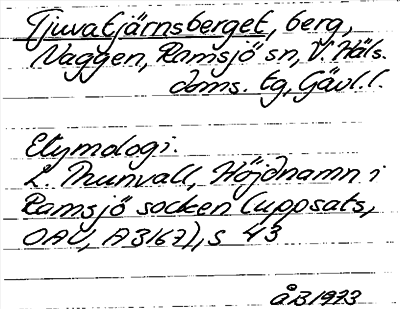 Tjuvatjärnsberget, berg,
Naggen, Ramsjö sn, V. Häls.
doms. tg, Gävl. l.
Etymologi.
L. Thunvall, Höjdnamn i
Ramsjö socken (uppsats,
OAU, A3167), s 43
åB 1973